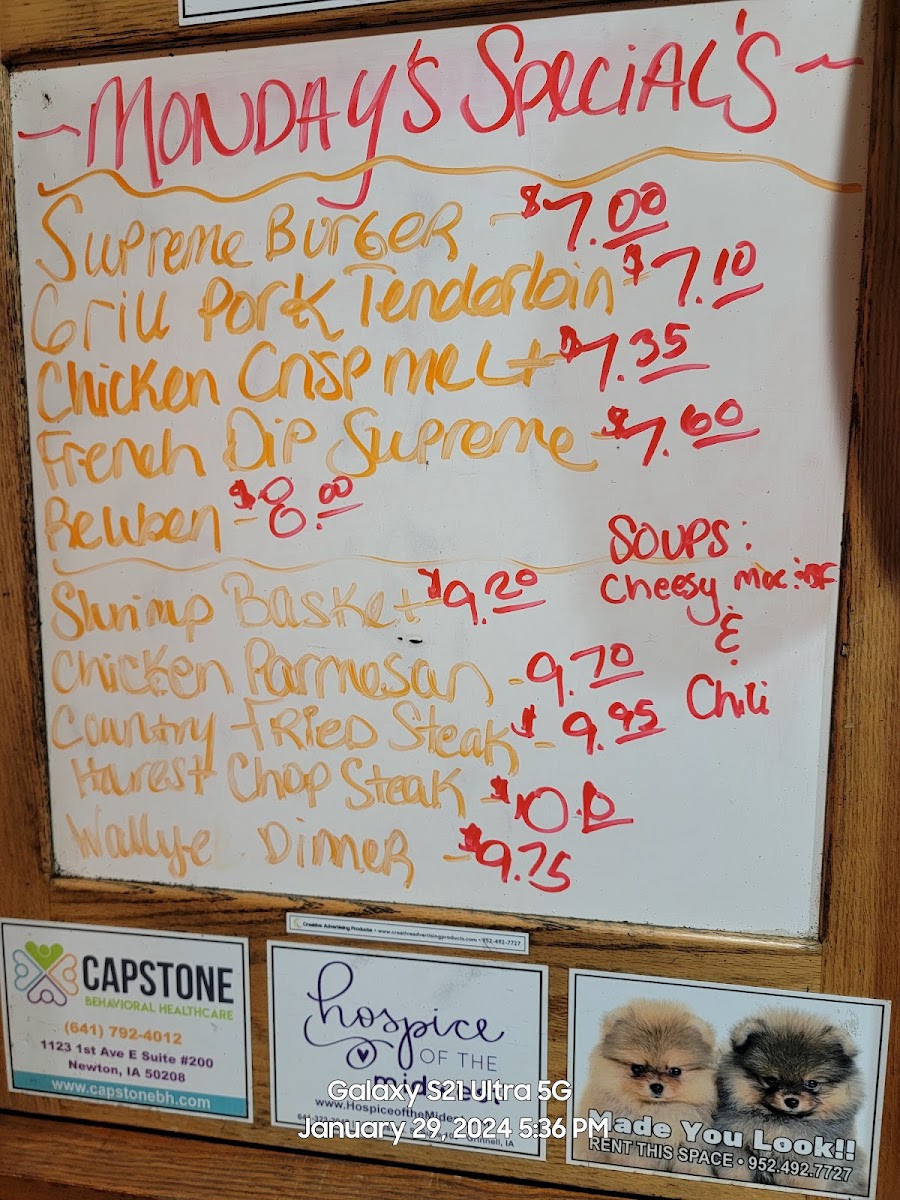 ~ Monday's Special's ~
Supreme Burger - $7.00
Grill Pork Tenderloin $7.10
Chicken Crisp Melt $7.35
French Dip Supreme - $7.60
Rewben - $8.00
Soups:
Cheesy Mac
&
Chili
Shrimp Basket - $9.20
Chicken Parmesan - 9.70
Country Fried Steak - $9.95
Harest Chop Steak $10.
Wallye Dinner - $9.75
Creative Advertising Products • www.creativeadvertisingproducts.com • 952-492-7727
CAPSTONE
BEHAVIORAL HEALTHCARE
(641) 792-4012
1123 1st Ave E Suite #200
Newton, IA 50208
www.capstonebh.com
hospice
OF THE
midwest
Grinnell, IA
Made You Look!!
RENT THIS SPACE • 952.492.7727
Galaxy S21 Ultra 5G
January 29, 2024 5:36 PM